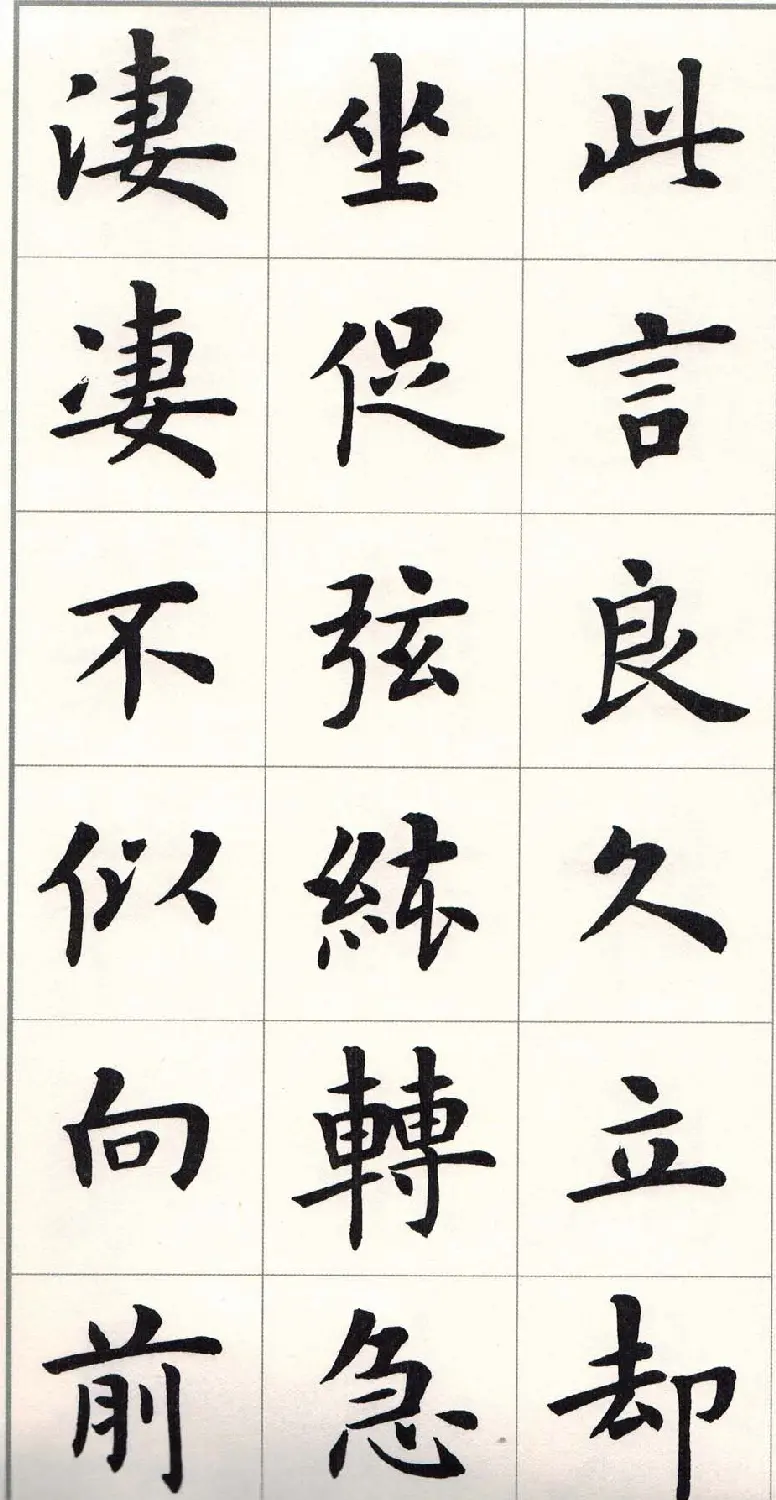 此言良久立却
坐促弦絃轉急
淒凄不似向前